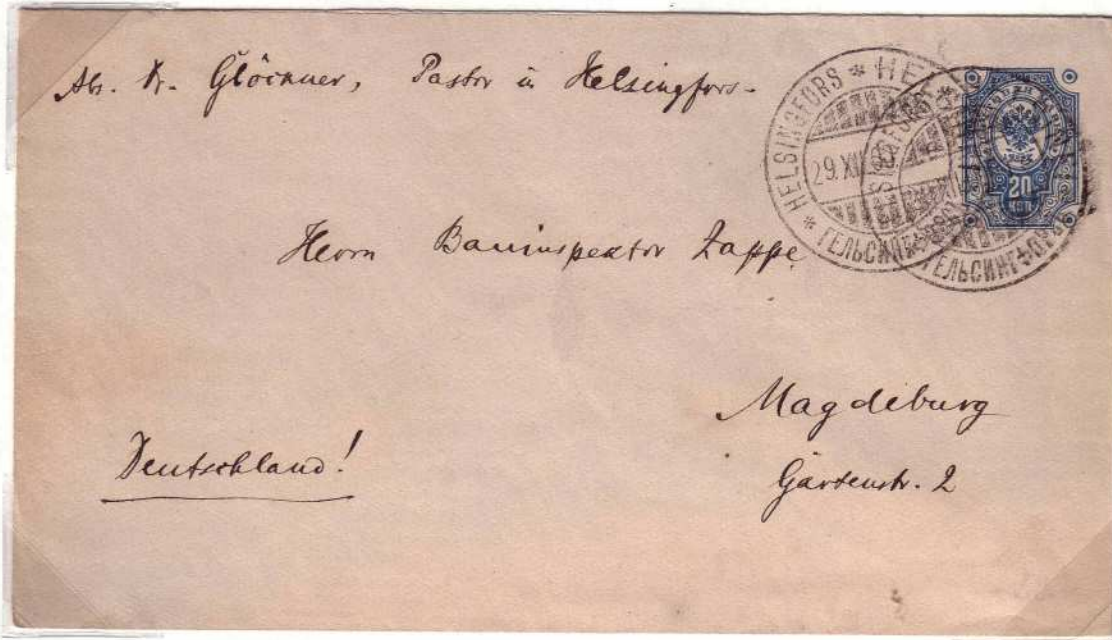 Abs. Dr. Glöckner, Pastor in Helsingfors.
HELSINGFORS * HE
29. XII
ГЕЛЬСИНГФОРСЪ
20
КОП
Herrn Bauinspektor Zappe
Magdeburg
Gartenstr. 2
Deutschland!